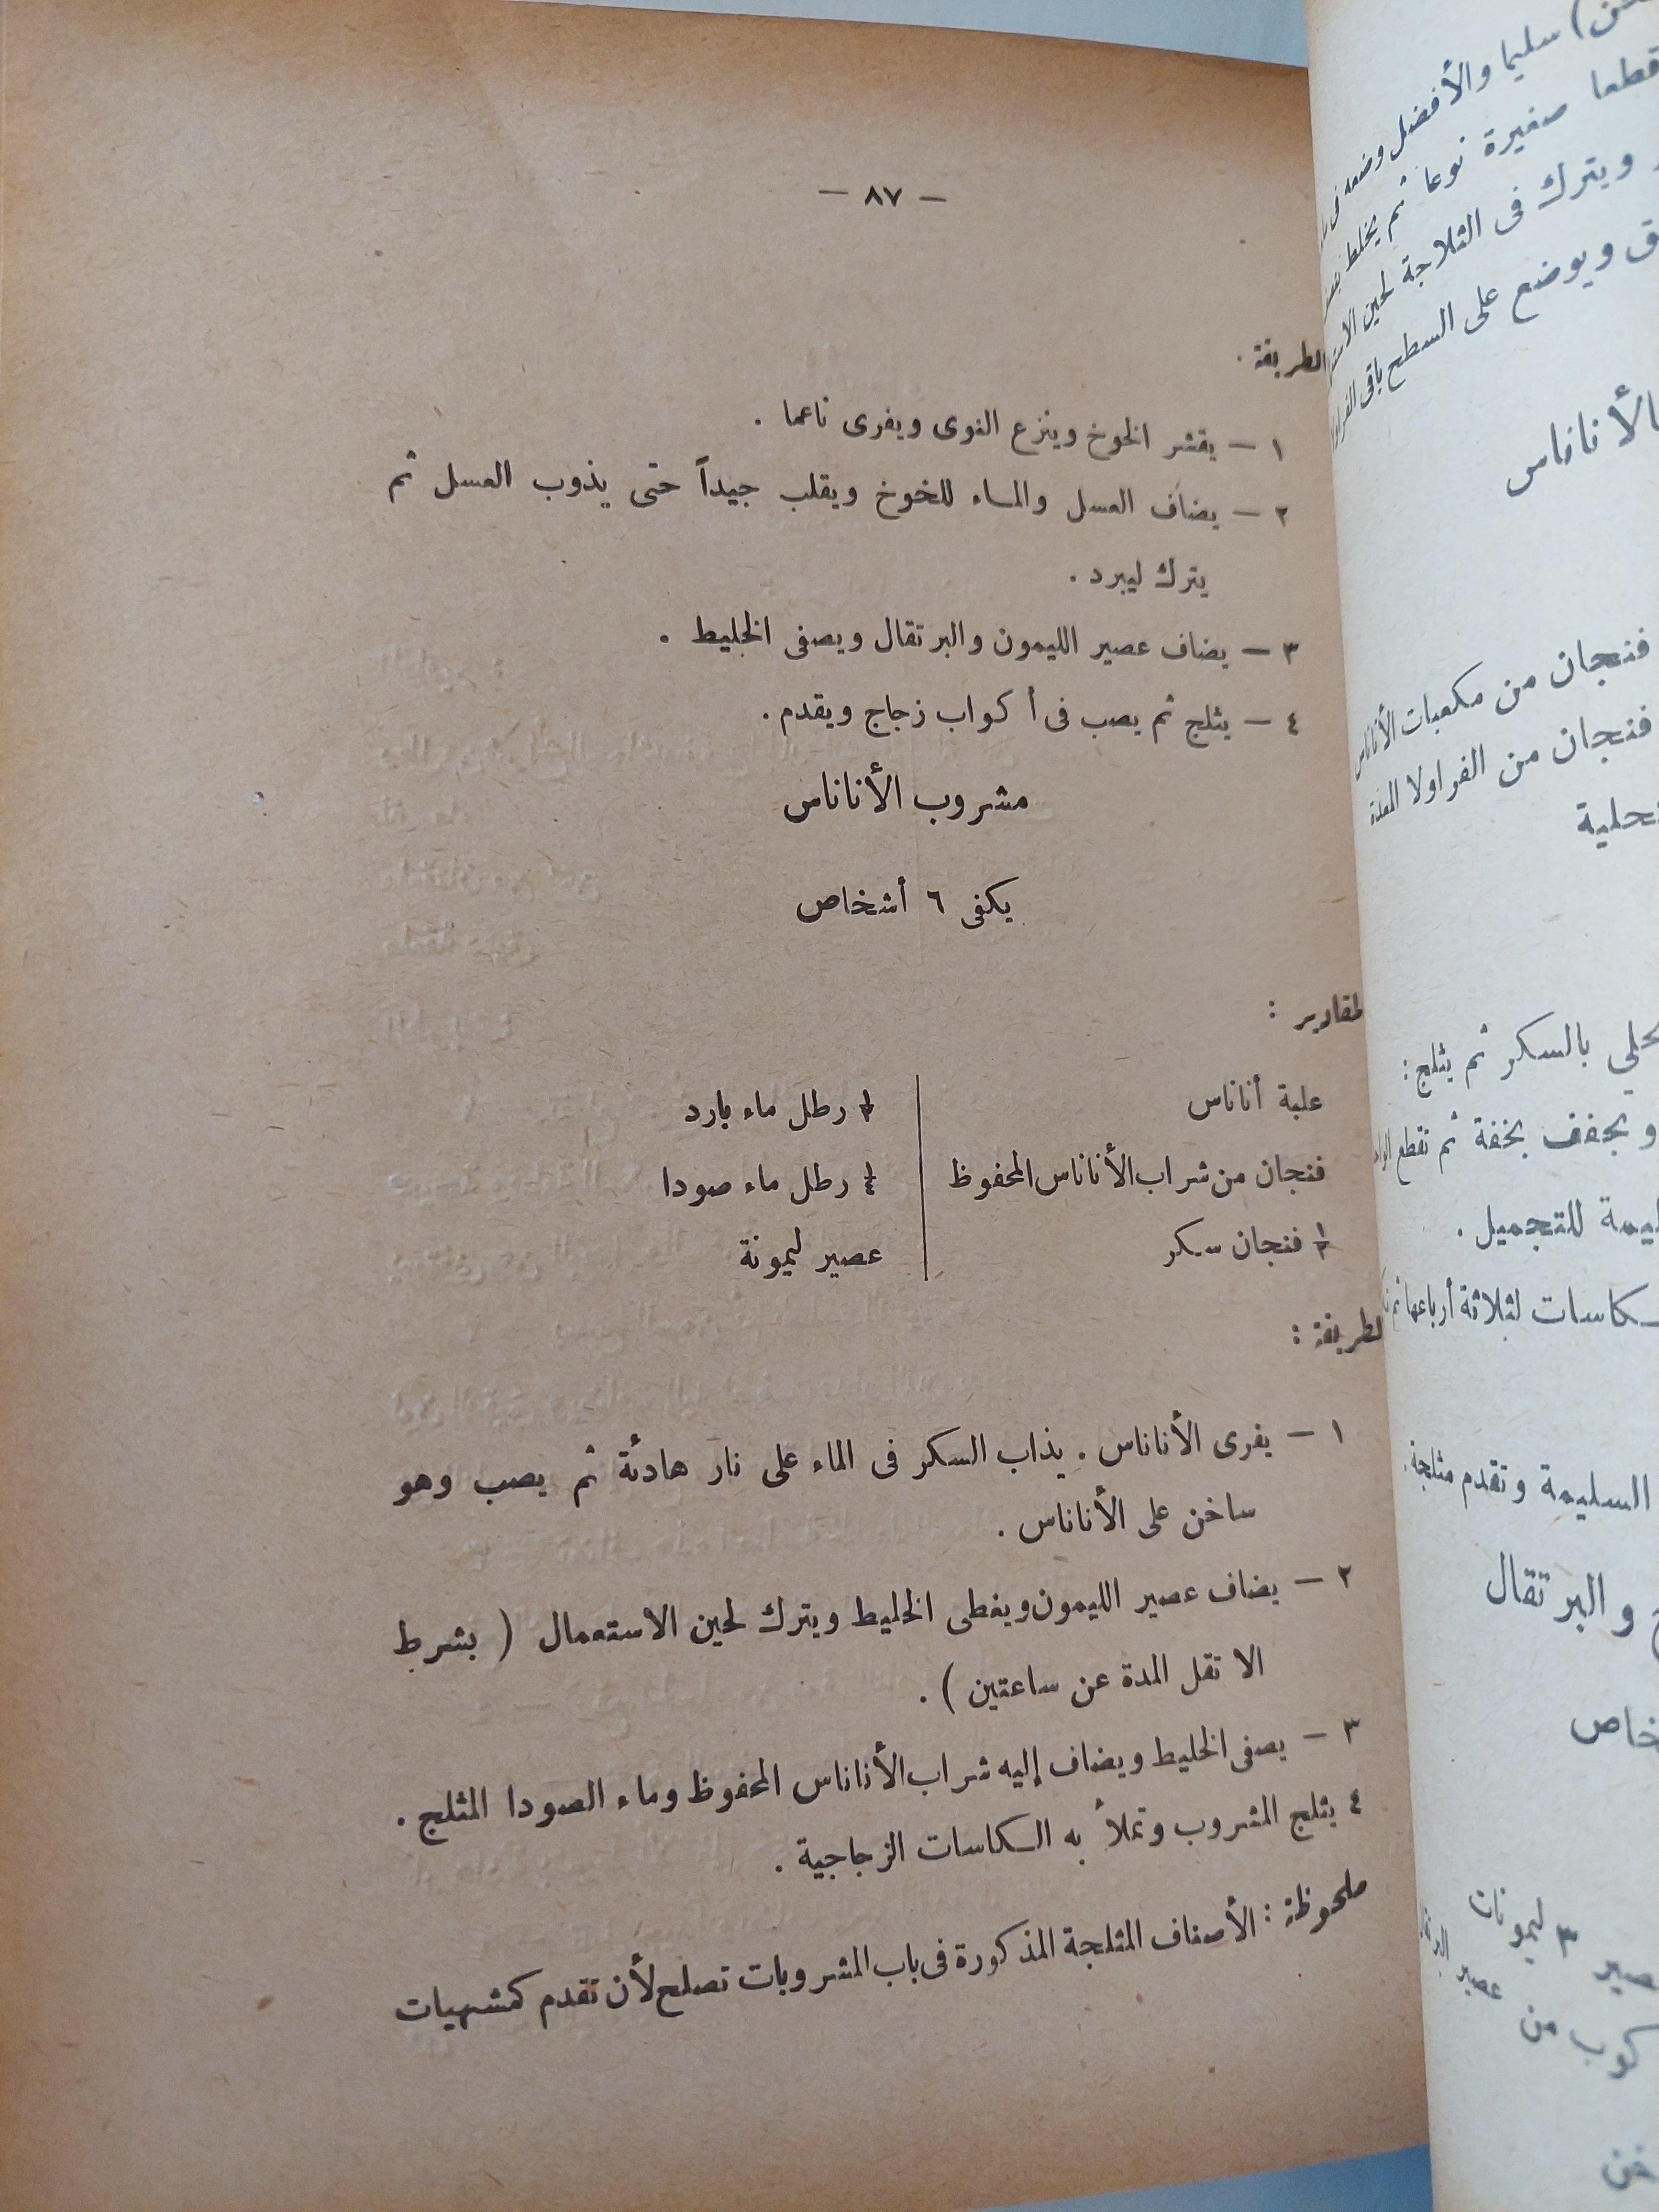 — ٨٧ —
الطريقة .
١ — يقشر الخوخ وينزع النوى ويفرى ناعما .
٢ — يضاف العسل والماء للخوخ ويقلب جيداً حتى يذوب العسل ثم
يترك ليبرد .
٣ — يضاف عصير الليمون والبرتقال ويصفى الخليط .
٤ — يثلج ثم يصب فى أكواب زجاج ويقدم .
مشروب الأناناس
يكفى ٦ أشخاص
لمقادير :
علبة أناناس
فنجان من شراب الأناناس المحفوظ
½ فنجان سكر
½ رطل ماء بارد
¼ رطل ماء صودا
عصير ليمونة
لطريقة :
١ — يفرى الأناناس . يذاب السكر فى الماء على نار هادئة ثم يصب وهو
ساخن على الأناناس .
٢ — يضاف عصير الليمون ويغطى الخليط ويترك لحين الاستعمال ( بشرط
الا تقل المدة عن ساعتين ) .
٣ — يصفى الخليط ويضاف إليه شراب الأناناس المحفوظ وماء الصودا المثلج .
٤ يثلج المشروب وتملأ به الكاسات الزجاجية .
ملحوظة : الأصناف المثلجة المذكورة فى باب المشروبات تصلح لأن تقدم كمشهيات
سليما والأفضل وضعه فى
قطعا صغيرة نوعا ثم يخلط
ويترك فى الثلاجة لحين
ويوضع على السطح باقى
الأناناس
فنجان من مكعبات الأناناس
فنجان من الفراولا المعدة
بالسكر ثم يثلج :
وتجفف بخفة ثم تقطع
للتجميل .
لثلاثة أرباعها
السليمة وتقدم مثلجة .
والبرتقال
٣ ليمونات
كوب من عصير